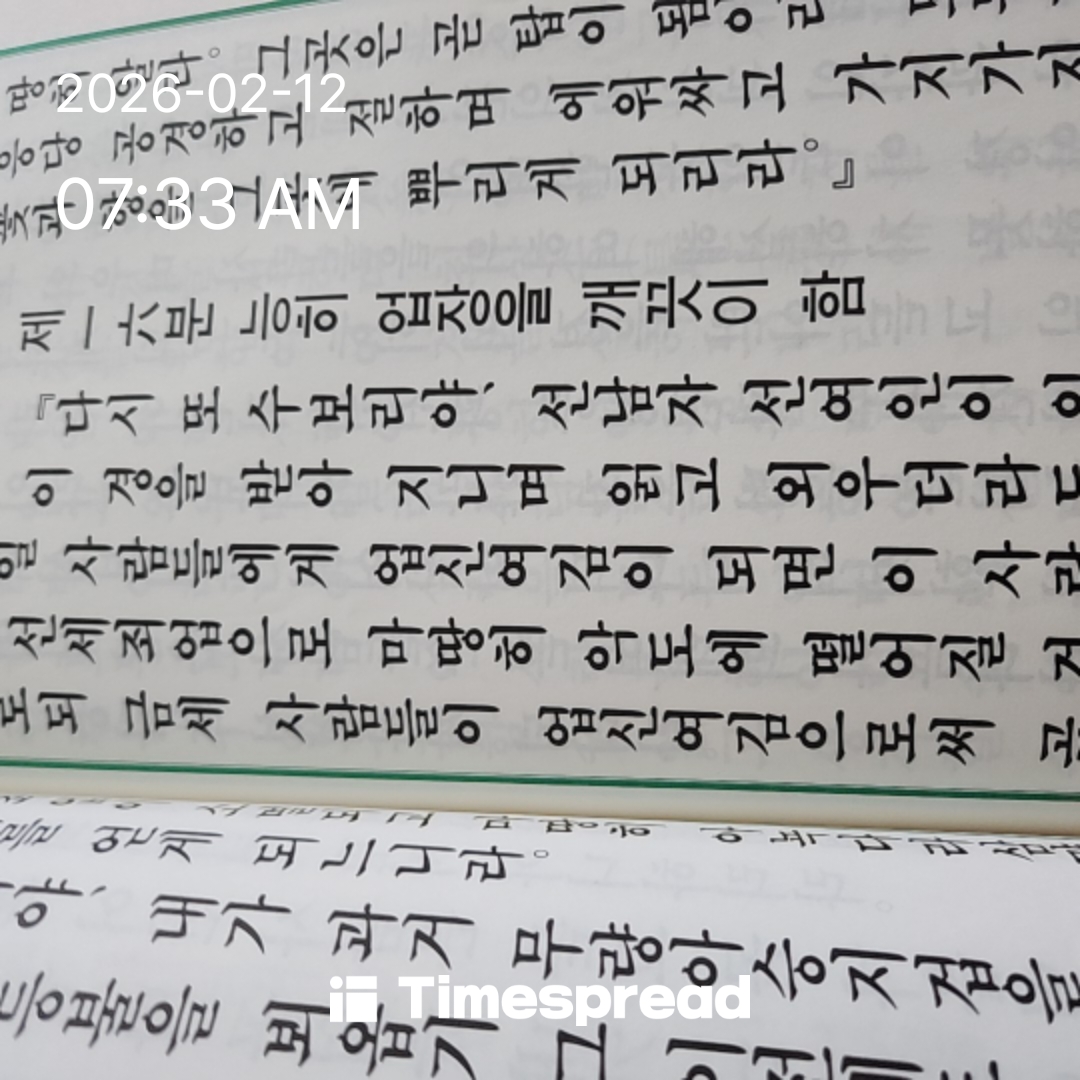 2026-02-12
07:33 AM
땅히 알라。 그곳은 곧 탑이 됨이라
응당 공경하고 절하며 에워싸고 가지가지
꽃과 향을 그곳에 뿌리게 되리라。』
제一六분 능히 업장을 깨끗이 함
『다시 또 수보리야、 선남자 선여인이 이
이 경을 받아 지니며 읽고 외우더라도
일 사람들에게 업신여김이 되면 이 사람
선세죄업으로 마땅히 악도에 떨어질 것
로되 금세 사람들이 업신여김으로써 곧
리를 얻게 되느니라。
야、 내가 과거 무량아승지겁을
등불을 뵈옵기 그
Timespread